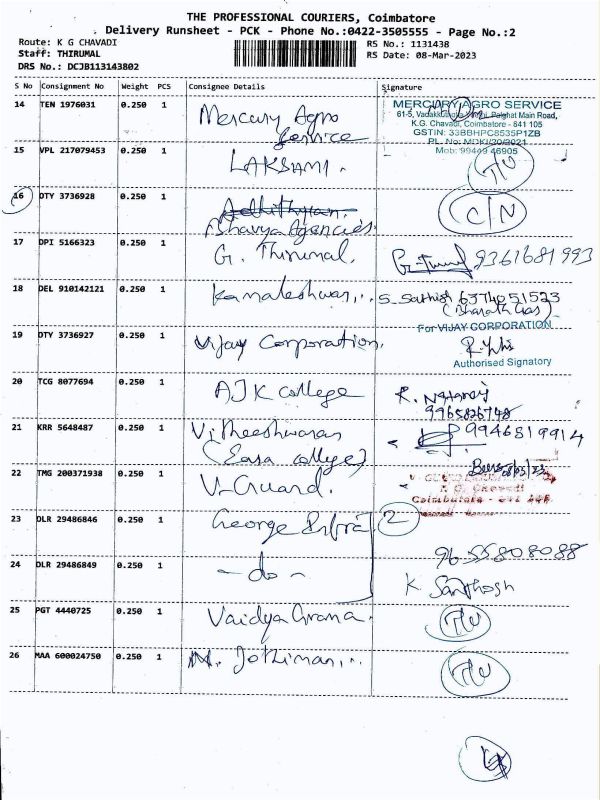 THE PROFESSIONAL COURIERS, Coimbatore
Delivery Runsheet - PCK - Phone No.:0422-3505555 - Page No.:2
Route: K G CHAVADI
Staff: THIRUMAL
DRS No.: DCJB113143802
RS No.: 1131438
RS Date: 08-Mar-2023
S No Consignment No Weight PCS Consignee Details Signature
14 TEN 1976031 0.250 1 Mercury Agro Service
MERCURY AGRO SERVICE
Palghat Main Road,
K.G. Chavadi, Coimbatore - 641 105
GSTIN: 33BBHPC8535P1ZB
Mob: 99449 46905
15 VPL 217079453 0.250 1 LAKSHMI.
16 DTY 3736928 0.250 1
Bhavya Agencies.
C/N
17 DPI 5166323 0.250 1 G. Thirumal. 9361681993
18 DEL 910142121 0.250 1 Kamaleshwari... S. Sathish 6374051523
(Bharath Gas)
19 DTY 3736927 0.250 1 Vijay Corporation.
For VIJAY CORPORATION
Authorised Signatory
20 TCG 8077694 0.250 1 AJK college
9965826748
21 KRR 5648487 0.250 1 Vitheeshwaran
(Easa college)
9946819914
22 TMG 200371938 0.250 1 V-Guard.
K. G. Chavadi
Coimbatore - 641 105
23 DLR 29486846 0.250 1 George 2
24 DLR 29486849 0.250 1 - do -
9655808088
K. Santhosh
25 PGT 4440725 0.250 1 VaidyaGrama.
26 MAA 600024750 0.250 1 M. Jothimani...